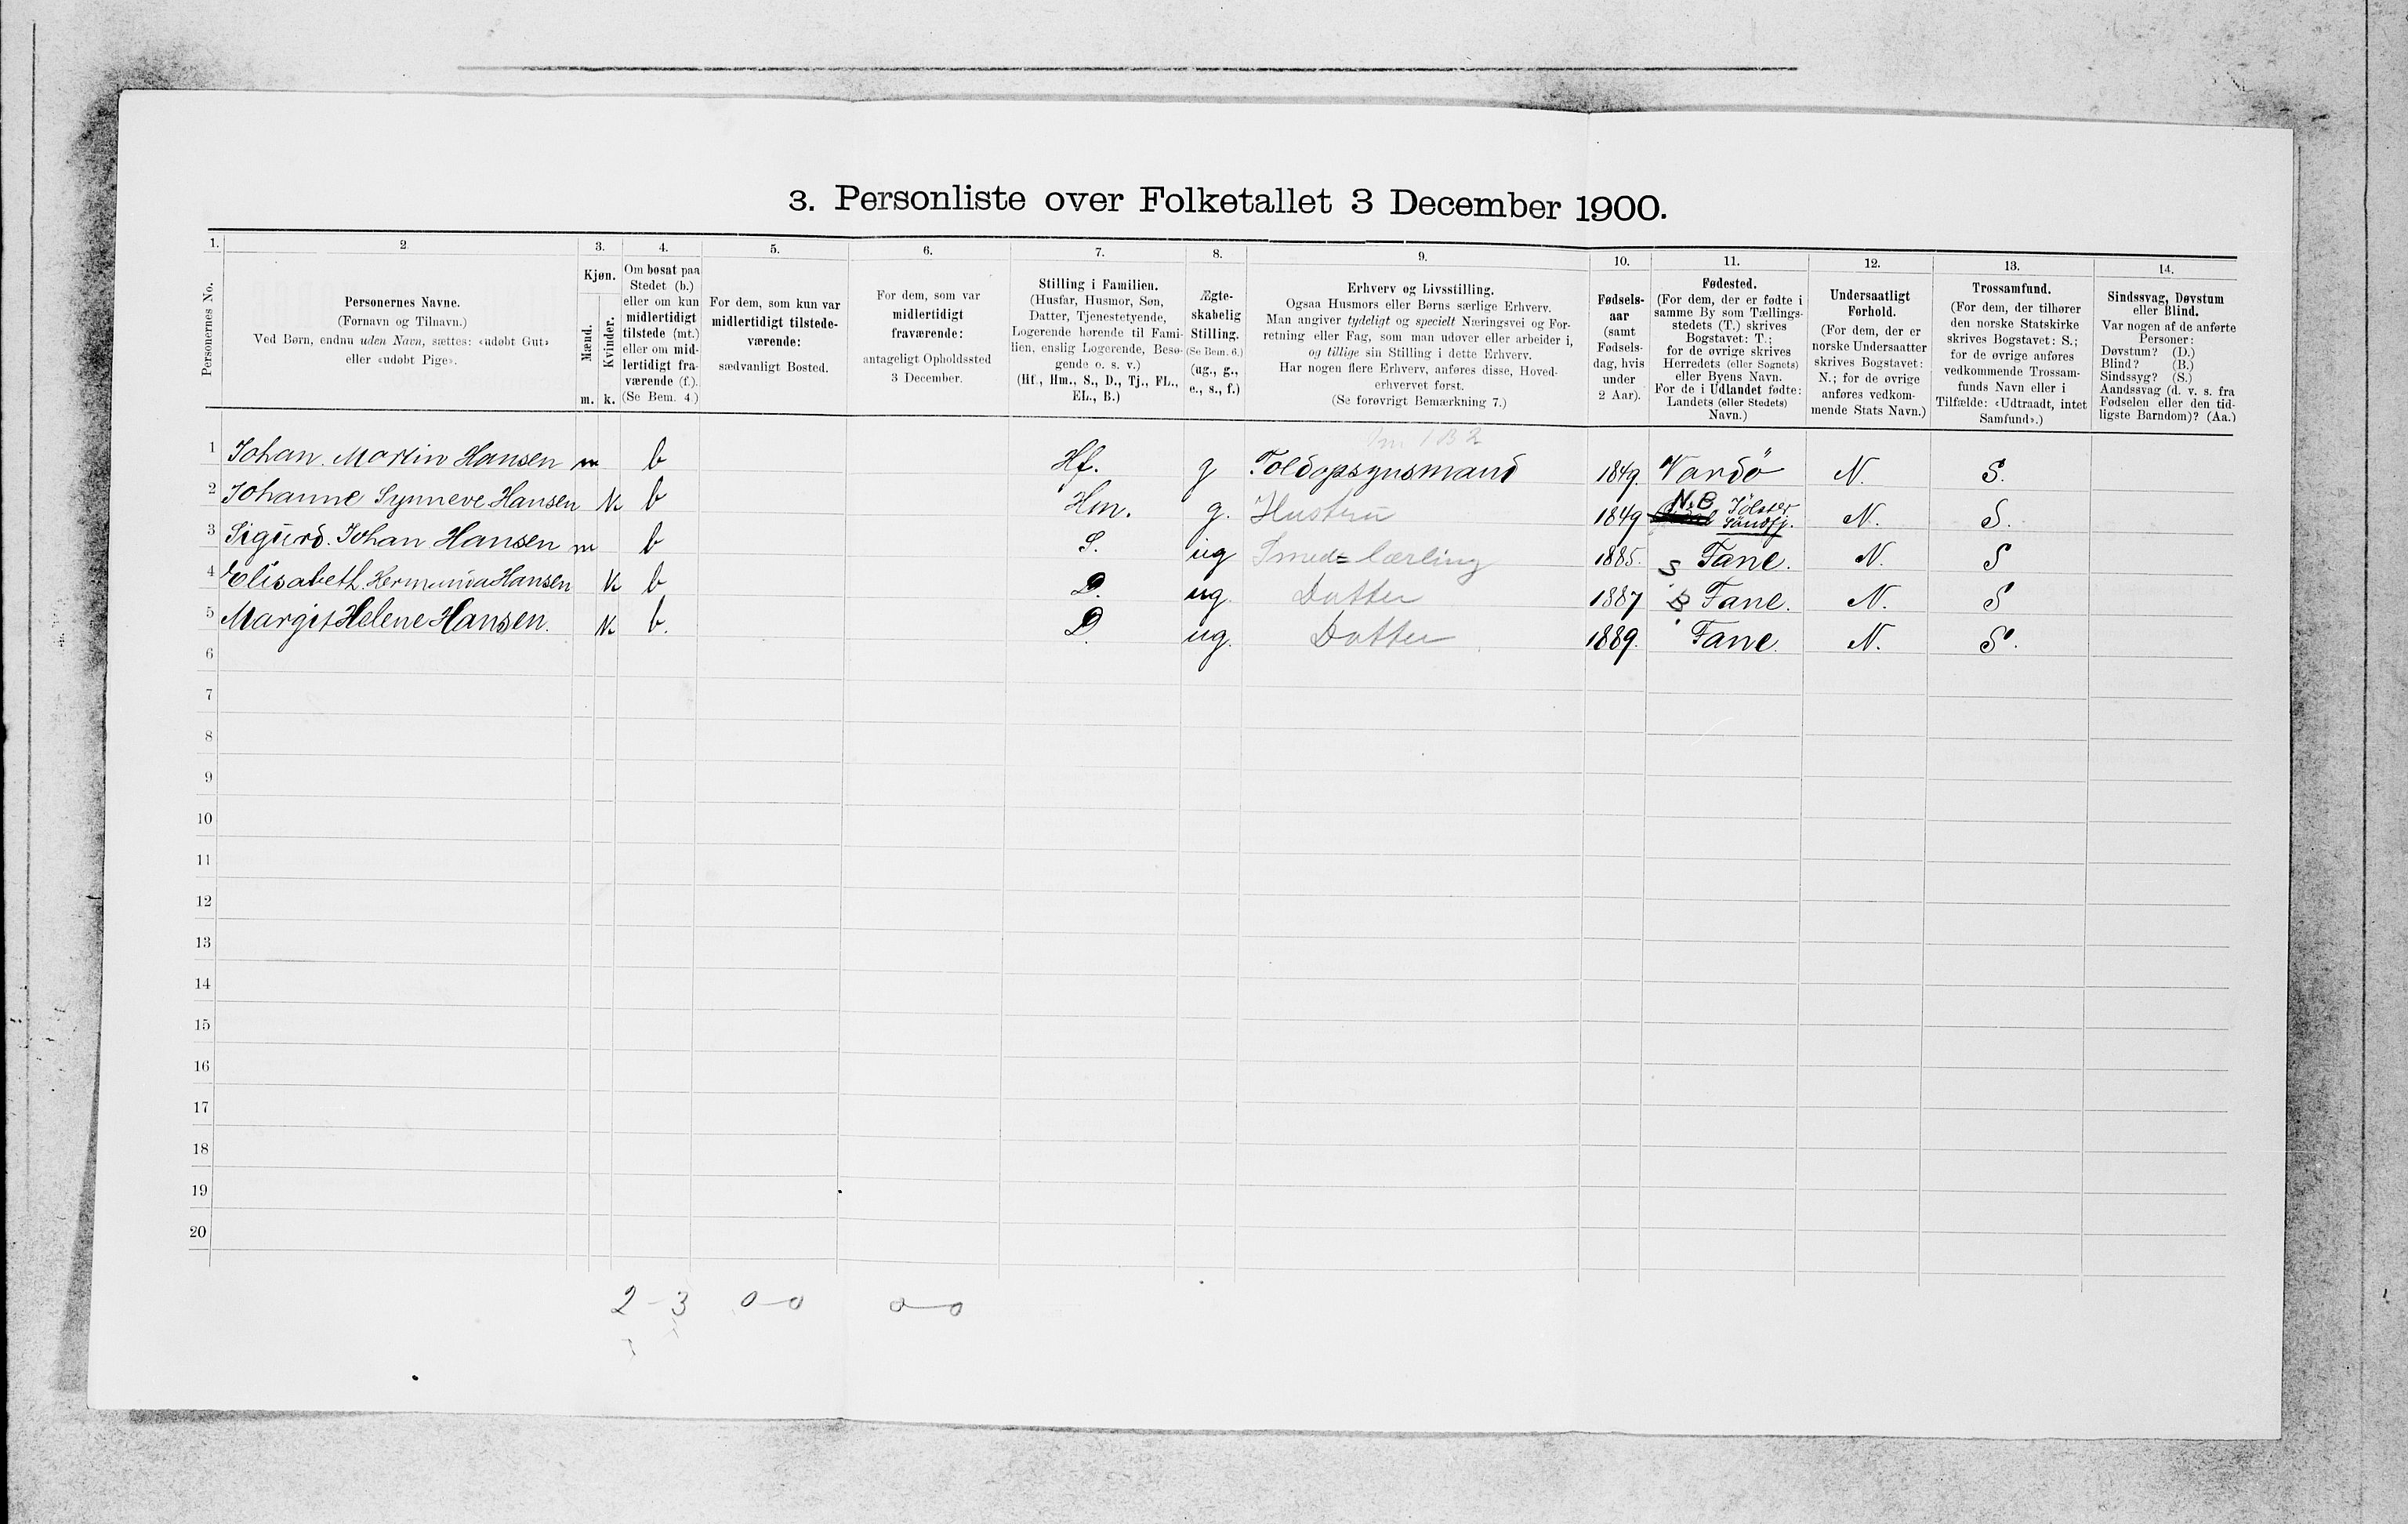 3. Personliste over Folketallet 3 December 1900.
1. 2 3. 4. 5. 6. 7. 8. 9. 10. 11. 12. 13. 14.
Personernes No.
Personernes Navne.
(Fornavn og Tilnavn.)
Ved Børn, endnu uden Navn, sættes: «udøbt Gut»
eller «udøbt Pige».
Kjøn.
Mænd.
Kvinder.
m. k.
Om bosat paa
Stedet (b.)
eller om kun
midlertidigt
tilstede (mt.)
eller om mid-
lertidigt fra-
værende (f.).
(Se Bem. 4.)
For dem, som kun var
midlertidigt tilstede-
værende:
sædvanligt Bosted.
For dem, som var
midlertidigt
fraværende:
antageligt Opholdssted
3 December.
Stilling i Familien.
(Husfar, Husmor, Søn,
Datter, Tjenestetyende,
Logerende hørende til Fami-
lien, enslig Logerende, Besø-
gende o. s. v.)
(Hf., Hm., S., D., Tj., FL.,
EL., B.)
Ægte-
skabelig
Stilling.
(Se Bem. 6.)
(ug., g.,
e., s., f.)
Erhverv og Livsstilling.
Ogsaa Husmors eller Børns særlige Erhverv.
Man angiver tydeligt og specielt Næringsvei og For-
retning eller Fag, som man udøver eller arbeider i,
og tillige sin Stilling i dette Erhverv.
Har nogen flere Erhverv, anføres disse, Hoved-
erhvervet først.
(Se forøvrigt Bemærkning 7.)
Fødsels-
aar
(samt
Fødsels-
dag, hvis
under
2 Aar).
Fødested.
(For dem, der er fødte i
samme By som Tællings-
stedets (T.) skrives
Bogstavet: T.;
for de øvrige skrives
Herredets (eller Sognets)
eller Byens Navn.
For de i Udlandet fødte:
Landets (eller Stedets)
Navn.)
Undersaatligt
Forhold.
(For dem, der er
norske Undersaatter
skrives Bogstavet:
N.; for de øvrige
anføres vedkom-
mende Stats Navn.)
Trossamfund.
(For dem, der tilhører
den norske Statskirke
skrives Bogstavet: S.;
for de øvrige anføres
vedkommende Trossam-
funds Navn eller i
Tilfælde: «Udtraadt, intet
Samfund».)
Sindssvag, Døvstum
eller Blind.
Var nogen af de anførte
Personer:
Døvstum? (D.)
Blind? (B.)
Sindssyg? (S.)
Aandssvag (d. v. s. fra
Fødselen eller den tid-
ligste Barndom)? (Aa.)
1 Johan. Martin Hansen m b Hf. g Toldopsynsmand 1849. Vardö N. S.
2 Johanne Synneve Hansen k b Hm. g. Hustru 1849 N.B Jölster Söndfj. N. S.
3 Sigurd. Johan Hansen m b S. ug Smed=lærling 1885. S Fane. N. S
4 Elisabeth. Hermunda Hansen k b D. ug. Datter 1887 B Fane. N. S
5 Margit Helene Hansen. k b. D ug. Datter 1889. Fane. N. S.
6
7
8
9
10
11
12
13
14
15
16
17
18
19
20
2-3 0-0 0-0